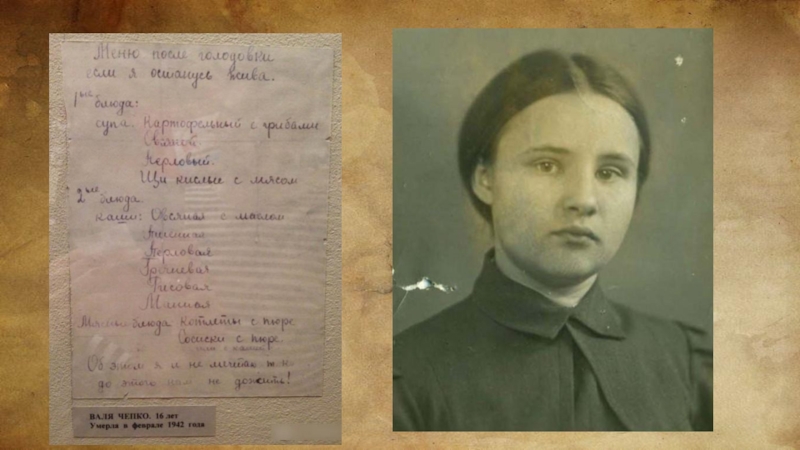 Меню после голодовки
если я останусь жива.
1ые блюда:
супа: Картофельный с грибами
Овсяной
Перловый.
Щи кислые с мясом
2ые блюда
каши: Овсяная с маслом
Пшенная
Перловая
Гречневая
Рисовая
Манная
Мясные блюда Котлеты с пюре
Сосиски с пюре
или с кашей
Об этом я и не мечтаю
до этого нам не дожить!
ВАЛЯ ЧЕПКО. 16 лет
Умерла в феврале 1942 года